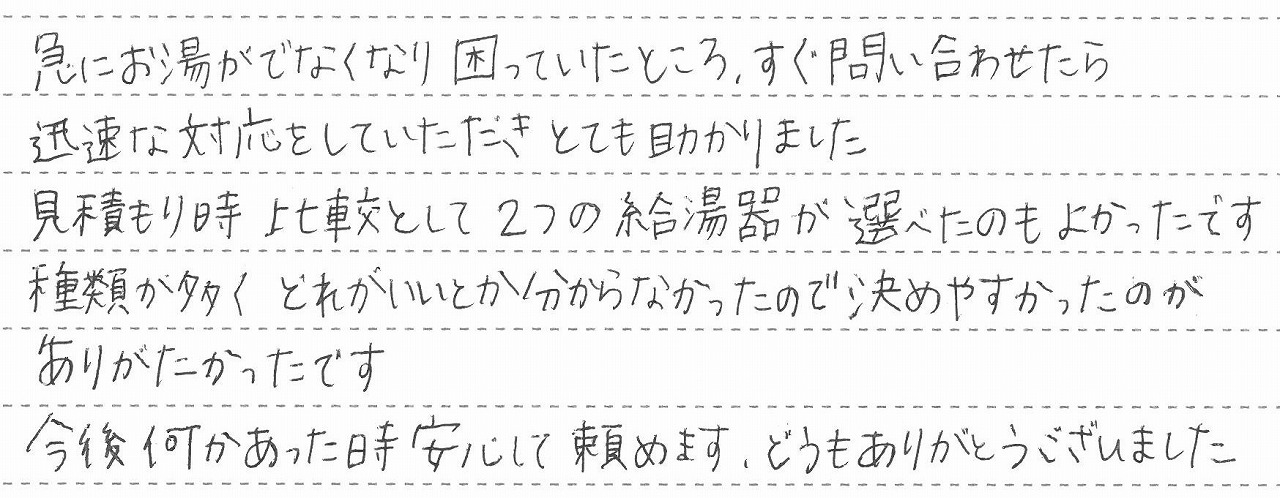 急にお湯がでなくなり困っていたところ、すぐ問い合わせたら
迅速な対応をしていただき とても助かりました
見積もり時 比較として 2つの給湯器が選べたのもよかったです
種類が多く どれがいいとか分からなかったので決めやすかったのが
ありがたかったです
今後何かあった時安心して頼めます、どうもありがとうございました